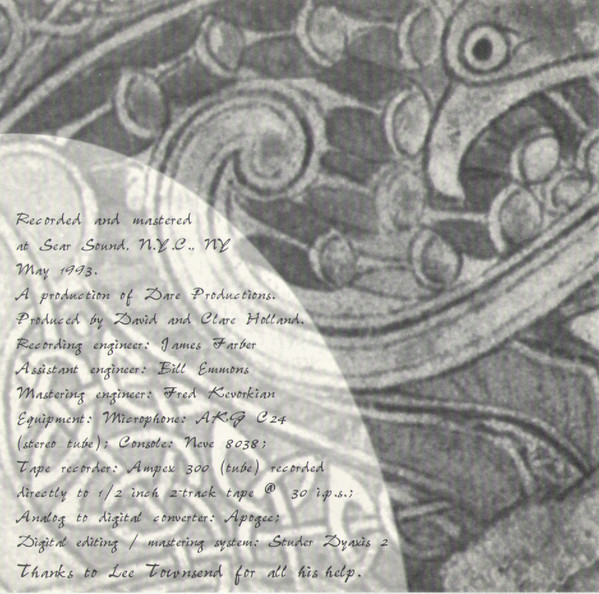 Recorded and mastered
at Sear Sound, N.Y.C., NY
May 1993.
A production of Dare Productions.
Produced by David and Clare Holland.
Recording engineer: James Farber
Assistant engineer: Bill Emmons
Mastering engineer: Fred Kevorkian
Equipment: Microphone: AKG C24
(stereo tube); Console: Neve 8038;
Tape recorder: Ampex 300 (tube) recorded
directly to 1/2 inch 2-track tape @ 30 i.p.s.;
Analog to digital converter: Apogee;
Digital editing / mastering system: Studer Dyaxis 2
Thanks to Lee Townsend for all his help.